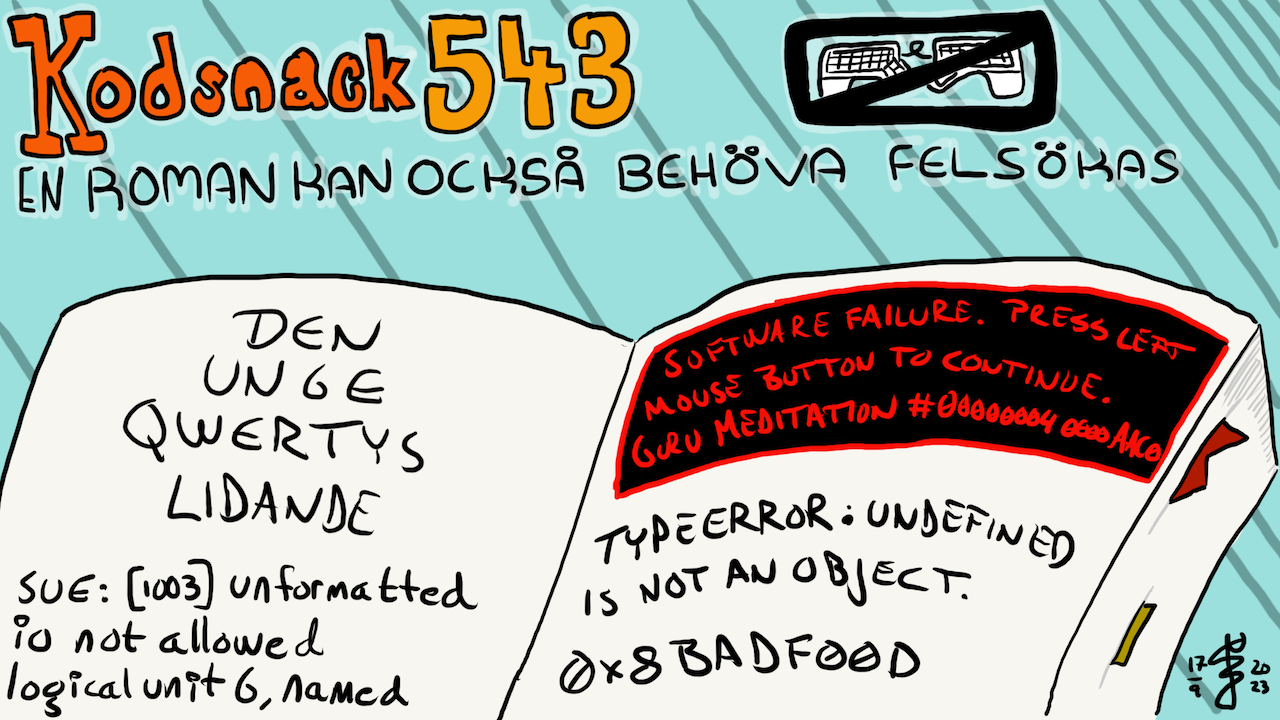 Kodsnack 543
EN ROMAN KAN OCKSÅ BEHÖVA FELSÖKAS
DEN
UNGE
QWERTYS
LIDANDE
SUE: [1003] unformatted
io not allowed
logical unit 6, named
SOFTWARE FAILURE. PRESS LEFT
MOUSE BUTTON TO CONTINUE.
GURU MEDITATION #00000004 0000AAC0
TYPEERROR: UNDEFINED
IS NOT AN OBJECT.
0x8BADF00D
17
9
20
23